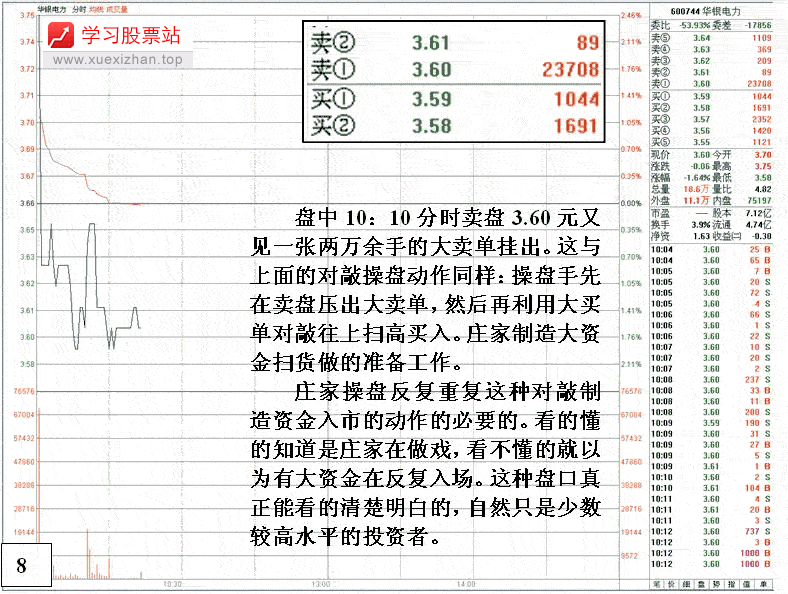 华银电力 分时 均线 成交量
学习股票站
www.xuexizhan.top
3.75
3.72
3.71
3.70
3.69
3.67
3.66
3.65
3.63
3.62
3.61
3.60
3.58
76576
67004
57432
47860
38288
28716
19144
9572
2.46%
2.11%
1.76%
1.41%
1.05%
0.70%
0.35%
0.00%
0.35%
0.70%
1.05%
1.41%
1.76%
2.11%
76576
67004
57432
47860
38288
28716
19144
9572
10:30
13:00
14:00
卖② 3.61 89
卖① 3.60 23708
买① 3.59 1044
买② 3.58 1691
盘中10：10分时卖盘3.60元又
见一张两万余手的大卖单挂出。这与
上面的对敲操盘动作同样：操盘手先
在卖盘压出大卖单，然后再利用大买
单对敲往上扫高买入。庄家制造大资
金扫货做的准备工作。
庄家操盘反复重复这种对敲制
造资金入市的动作的必要的。看的懂
的知道是庄家在做戏，看不懂的就以
为有大资金在反复入场。这种盘口真
正能看的清楚明白的，自然只是少数
较高水平的投资者。
8
600744 华银电力
委比 -53.93% 委差 -17856
卖⑤ 3.64 1109
卖④ 3.63 369
卖③ 3.62 209
卖② 3.61 89
卖① 3.60 23708
买① 3.59 1044
买② 3.58 1691
买③ 3.57 2352
买④ 3.56 1420
买⑤ 3.55 1121
现价 3.60 今开 3.70
涨跌 -0.06 最高 3.75
涨幅 -1.64% 最低 3.58
总量 18.6万 量比 4.82
外盘 11.1万 内盘 75197
市盈 — 股本 7.12亿
换手 3.9% 流通 4.74亿
净资 1.63 收益㈡ -0.30
10:04 3.60 25 B
10:04 3.60 65 B
10:05 3.60 7 B
10:05 3.60 20 S
10:05 3.60 72 S
10:05 3.60 4 S
10:06 3.60 66 S
10:06 3.60 1 S
10:06 3.60 22 S
10:07 3.60 10 S
10:07 3.60 20 S
10:07 3.60 2 S
10:08 3.60 237 S
10:08 3.60 33 B
10:08 3.60 11 B
10:08 3.60 200 S
10:09 3.59 190 S
10:09 3.60 31 S
10:09 3.60 27 B
10:09 3.60 5 S
10:09 3.61 1 B
10:10 3.60 2 S
10:10 3.61 104 B
10:11 3.60 4 S
10:11 3.61 20 B
10:11 3.60 3 S
10:12 3.60 737 S
10:12 3.60 3 B
10:12 3.60 1000 B
10:12 3.60 1000 B
笔 价 细 盘 势 指 值 单